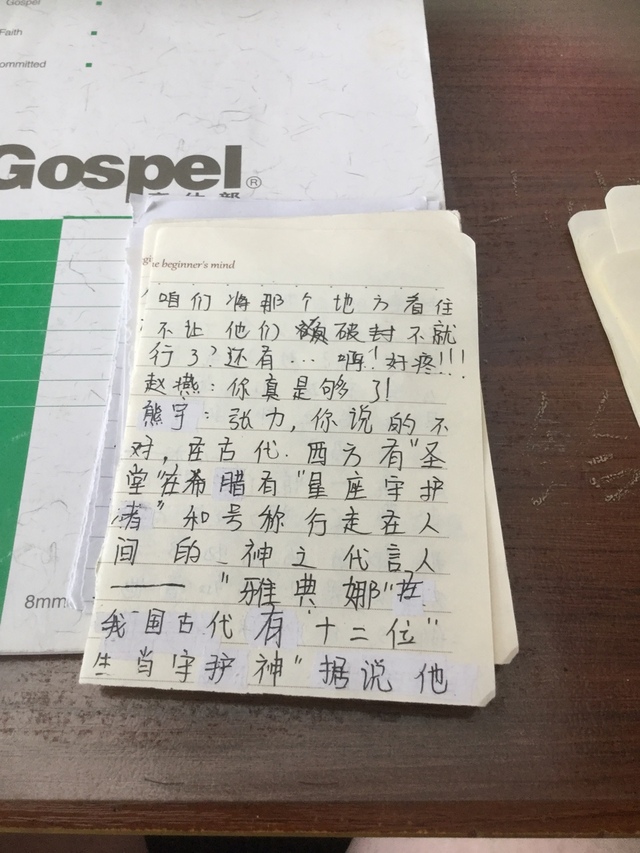 Gospel
Faith
ommitted
Gospel®
e beginner's mind
咱们将那个地方看住
不让他们破封不就
行了?还有… 啊!好疼!!!
赵燕:你真是够了!
熊宇:张力,你说的不
对,在古代.西方有"圣
堂"在希腊有"星座守护
者"和号称行走在人
间的神之代言人
——"雅典娜"在
我国古代有"十二位"
生肖守护神"据说他
8mm